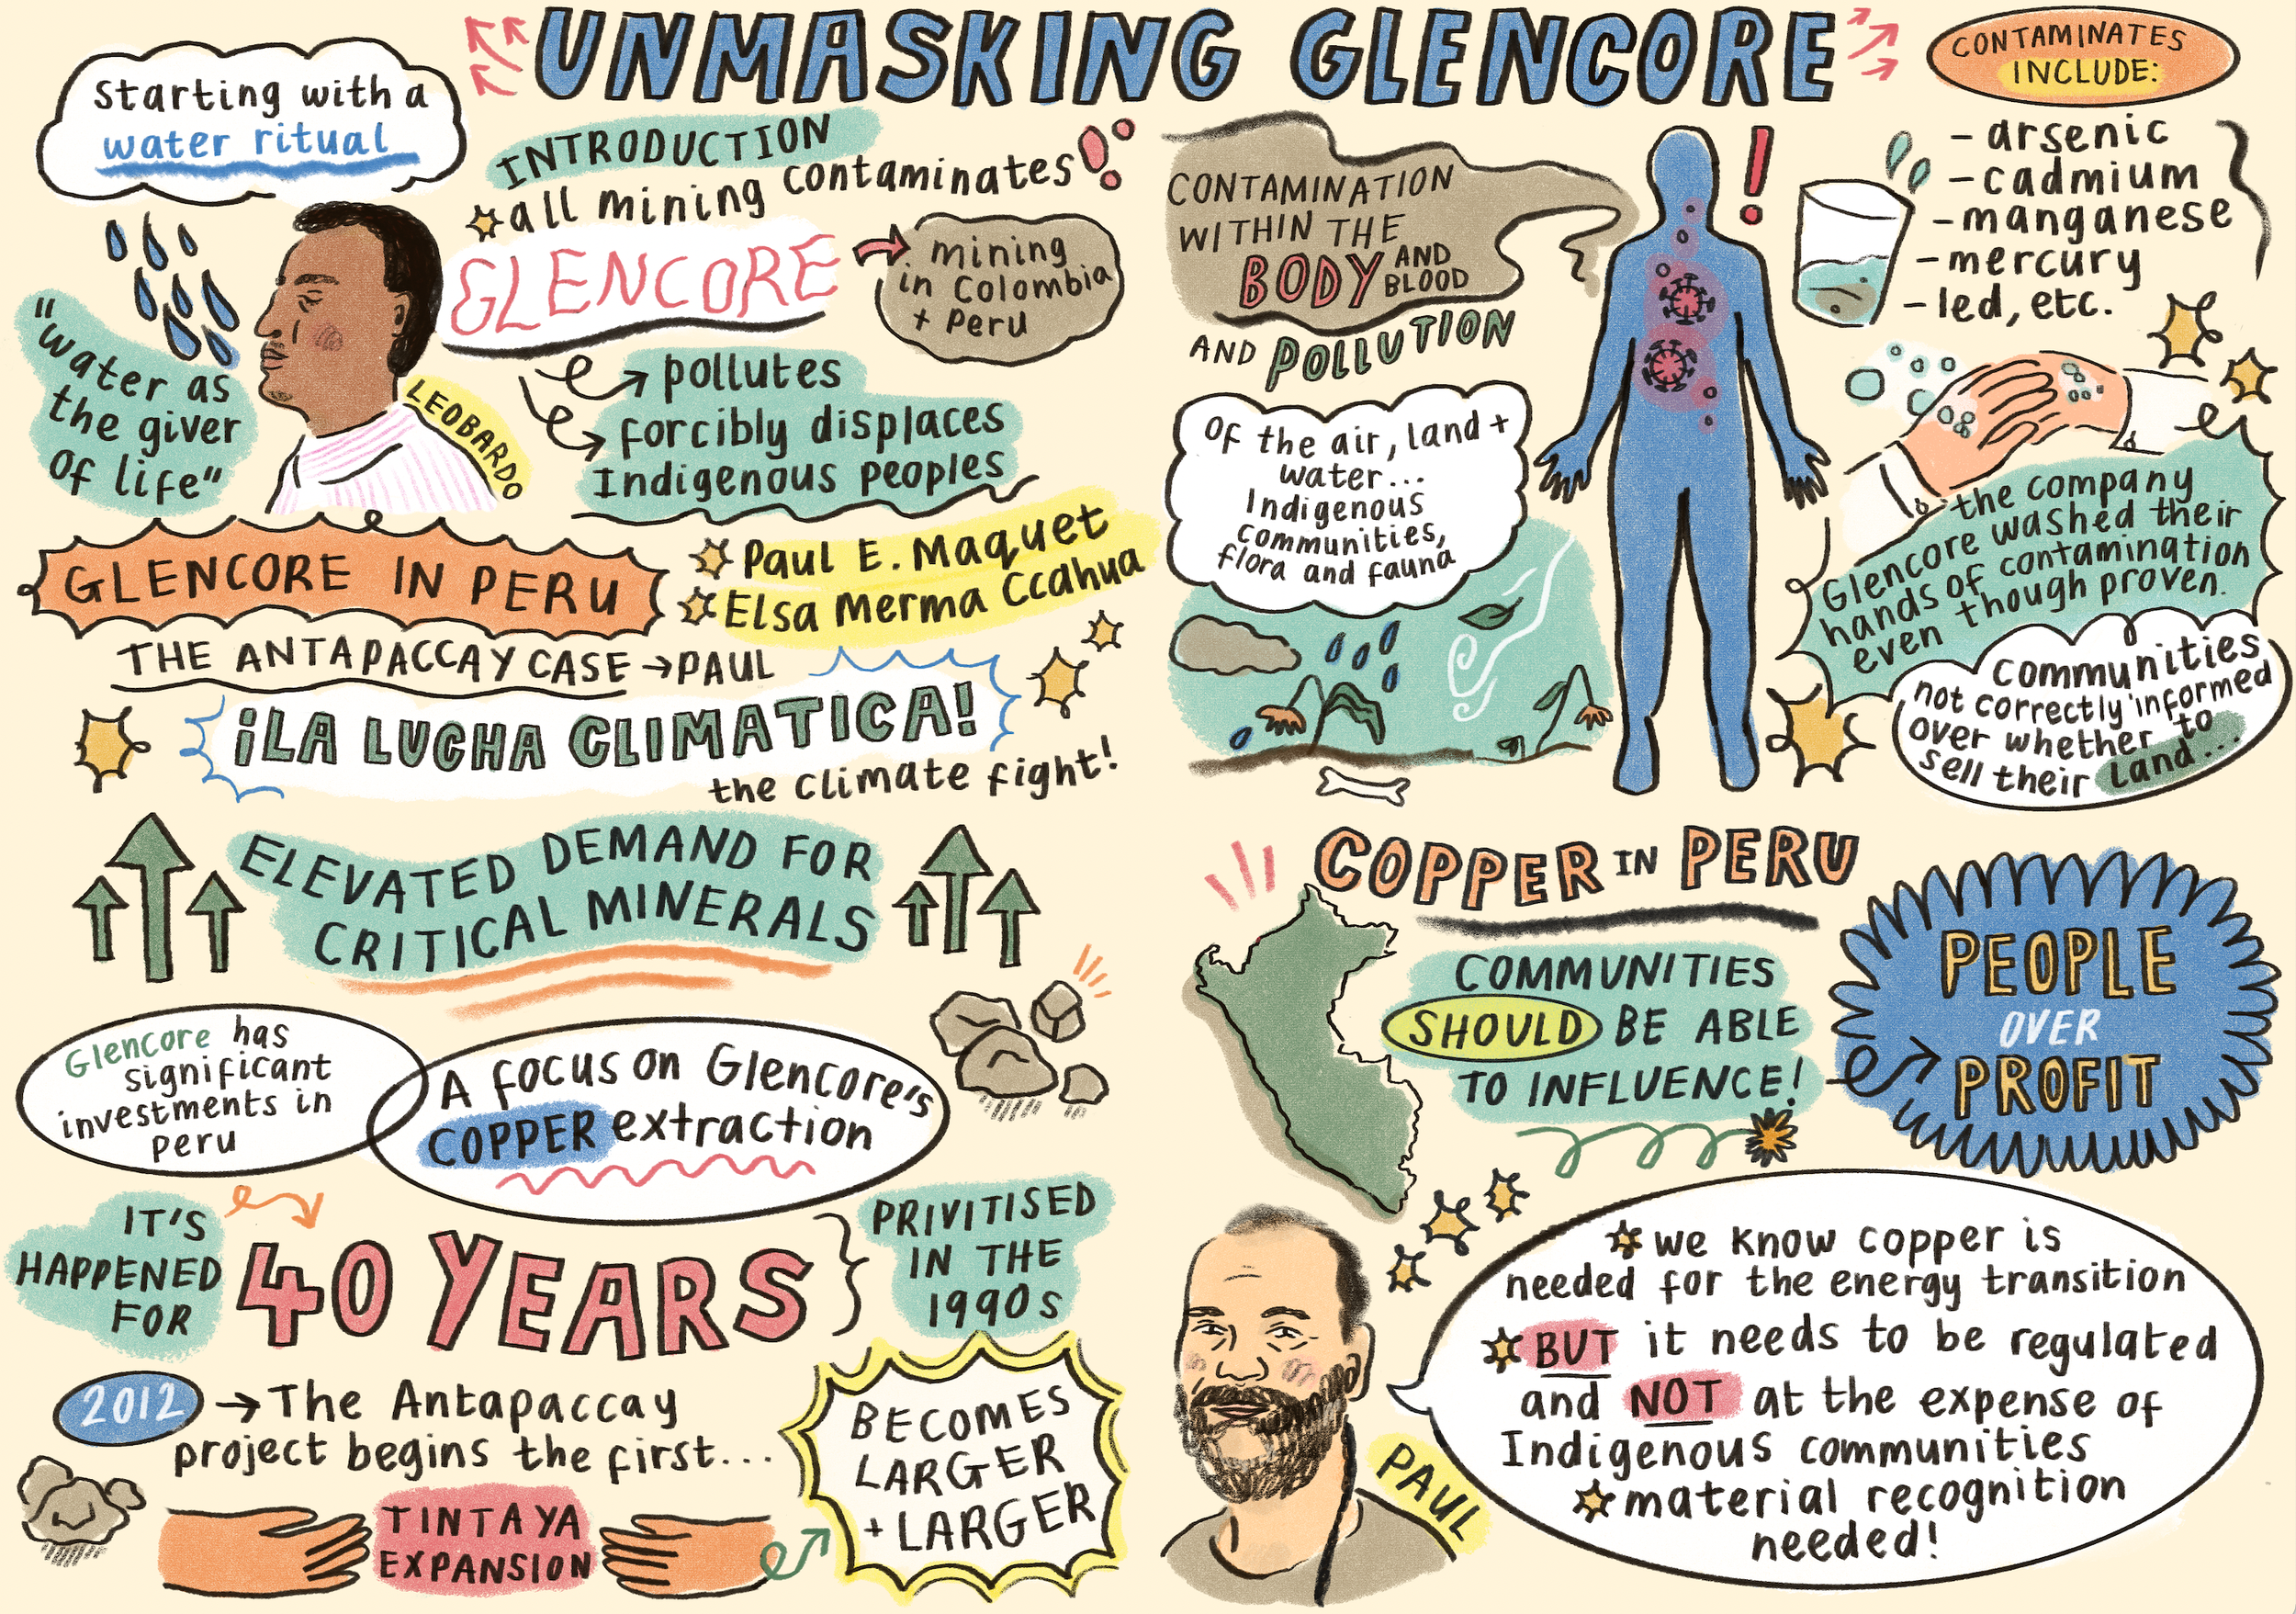 UNMASKING GLENCORE
Starting with a
water ritual
"water as
the giver
of life"
LEOBARDO
INTRODUCTION
all mining contaminates
GLENCORE
mining
in Colombia
+ Peru
pollutes
forcibly displaces
Indigenous peoples
GLENCORE IN PERU
Paul E. Maquet
Elsa Merma Ccahua
THE ANTAPACCAY CASE → PAUL
¡LA LUCHA CLIMATICA!
the climate fight!
ELEVATED DEMAND FOR
CRITICAL MINERALS
Glencore has
significant
investments in
peru
A focus on Glencore's
COPPER extraction
IT'S
HAPPENED
FOR
40 YEARS
PRIVITISED
IN THE
1990s
2012 → The Antapaccay
project begins the first...
TINTAYA
EXPANSION
BECOMES
LARGER
+ LARGER
CONTAMINATION
WITHIN THE
BODY AND
BLOOD
AND POLLUTION
Of the air, land +
water...
Indigenous
communities,
flora and fauna
CONTAMINATES
INCLUDE:
- arsenic
- cadmium
- manganese
- mercury
- led, etc.
the company
Glencore washed their
hands of contamination
even though proven.
communities
not correctly informed
over whether to
sell their land...
COPPER IN PERU
COMMUNITIES
SHOULD BE ABLE
TO INFLUENCE!
PEOPLE
OVER
PROFIT
PAUL
we know copper is
needed for the energy transition
BUT it needs to be regulated
and NOT at the expense of
Indigenous communities
material recognition
needed!